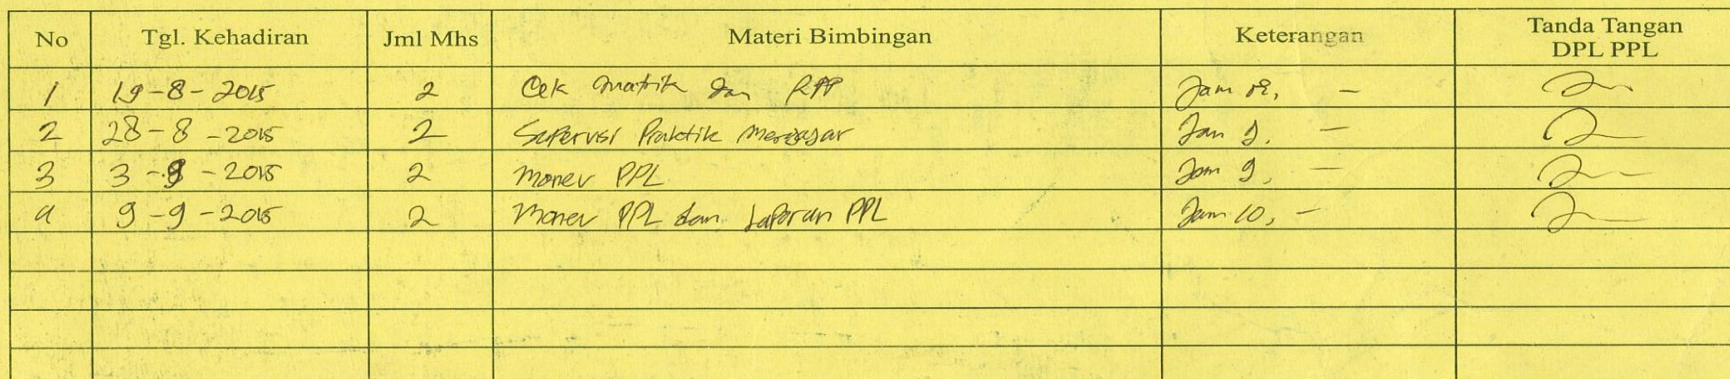 No Tgl. Kehadiran Jml Mhs Materi Bimbingan Keterangan Tanda Tangan
DPL PPL
1 19-8-2015 2 Cek matrik dan RPP Jam
2 28-8-2015 2 Supervisi Praktik mengajar Jam 9, -
3 3-9-2015 2 Monev PPL Jam 9, -
4 9-9-2015 2 Monev PPL dan Laporan PPL Jam 10, -